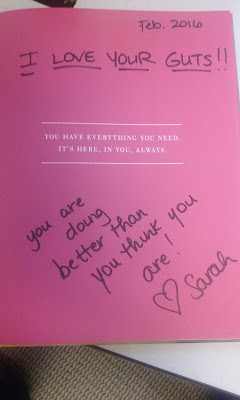 Feb. 2016
I LOVE YOUR GUTS!!
YOU HAVE EVERYTHING YOU NEED.
IT'S HERE, IN YOU, ALWAYS.
you are
doing
better than
you think you
are!
♡ Sarah